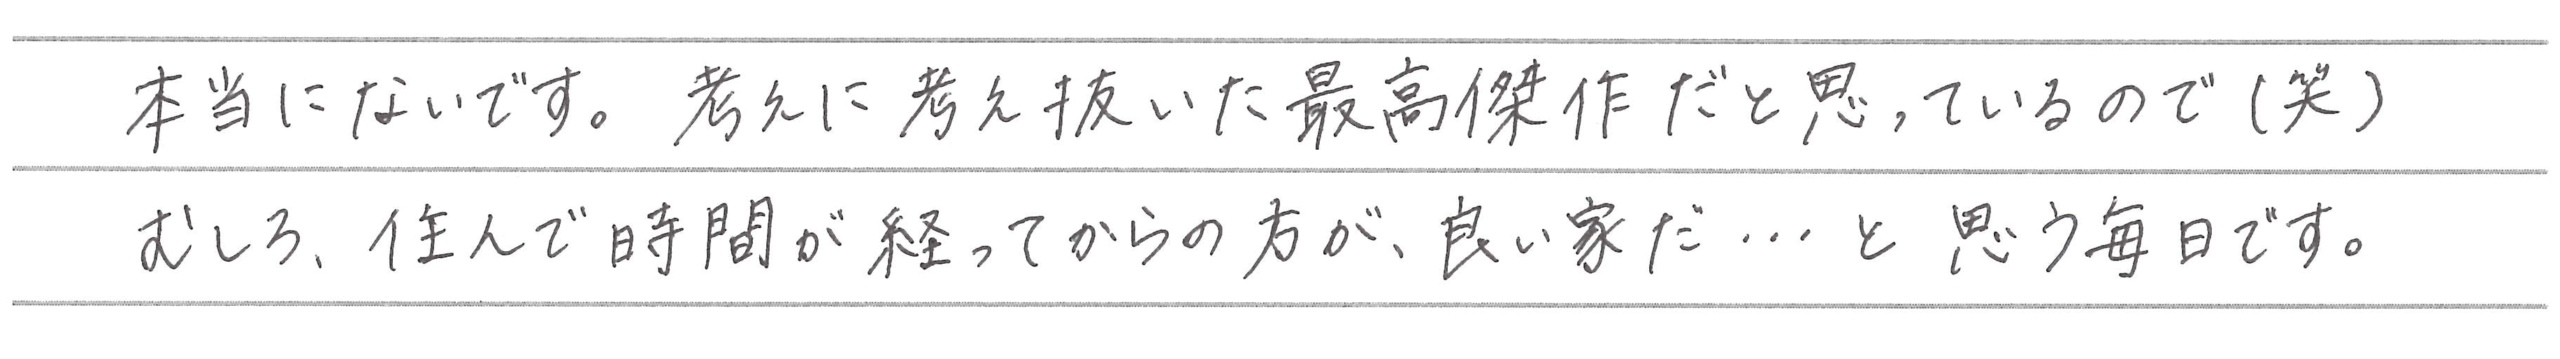 本当にないです。考えに考え抜いた最高傑作だと思っているので(笑)
むしろ、住んで時間が経ってからの方が、良い家だ…と思う毎日です。